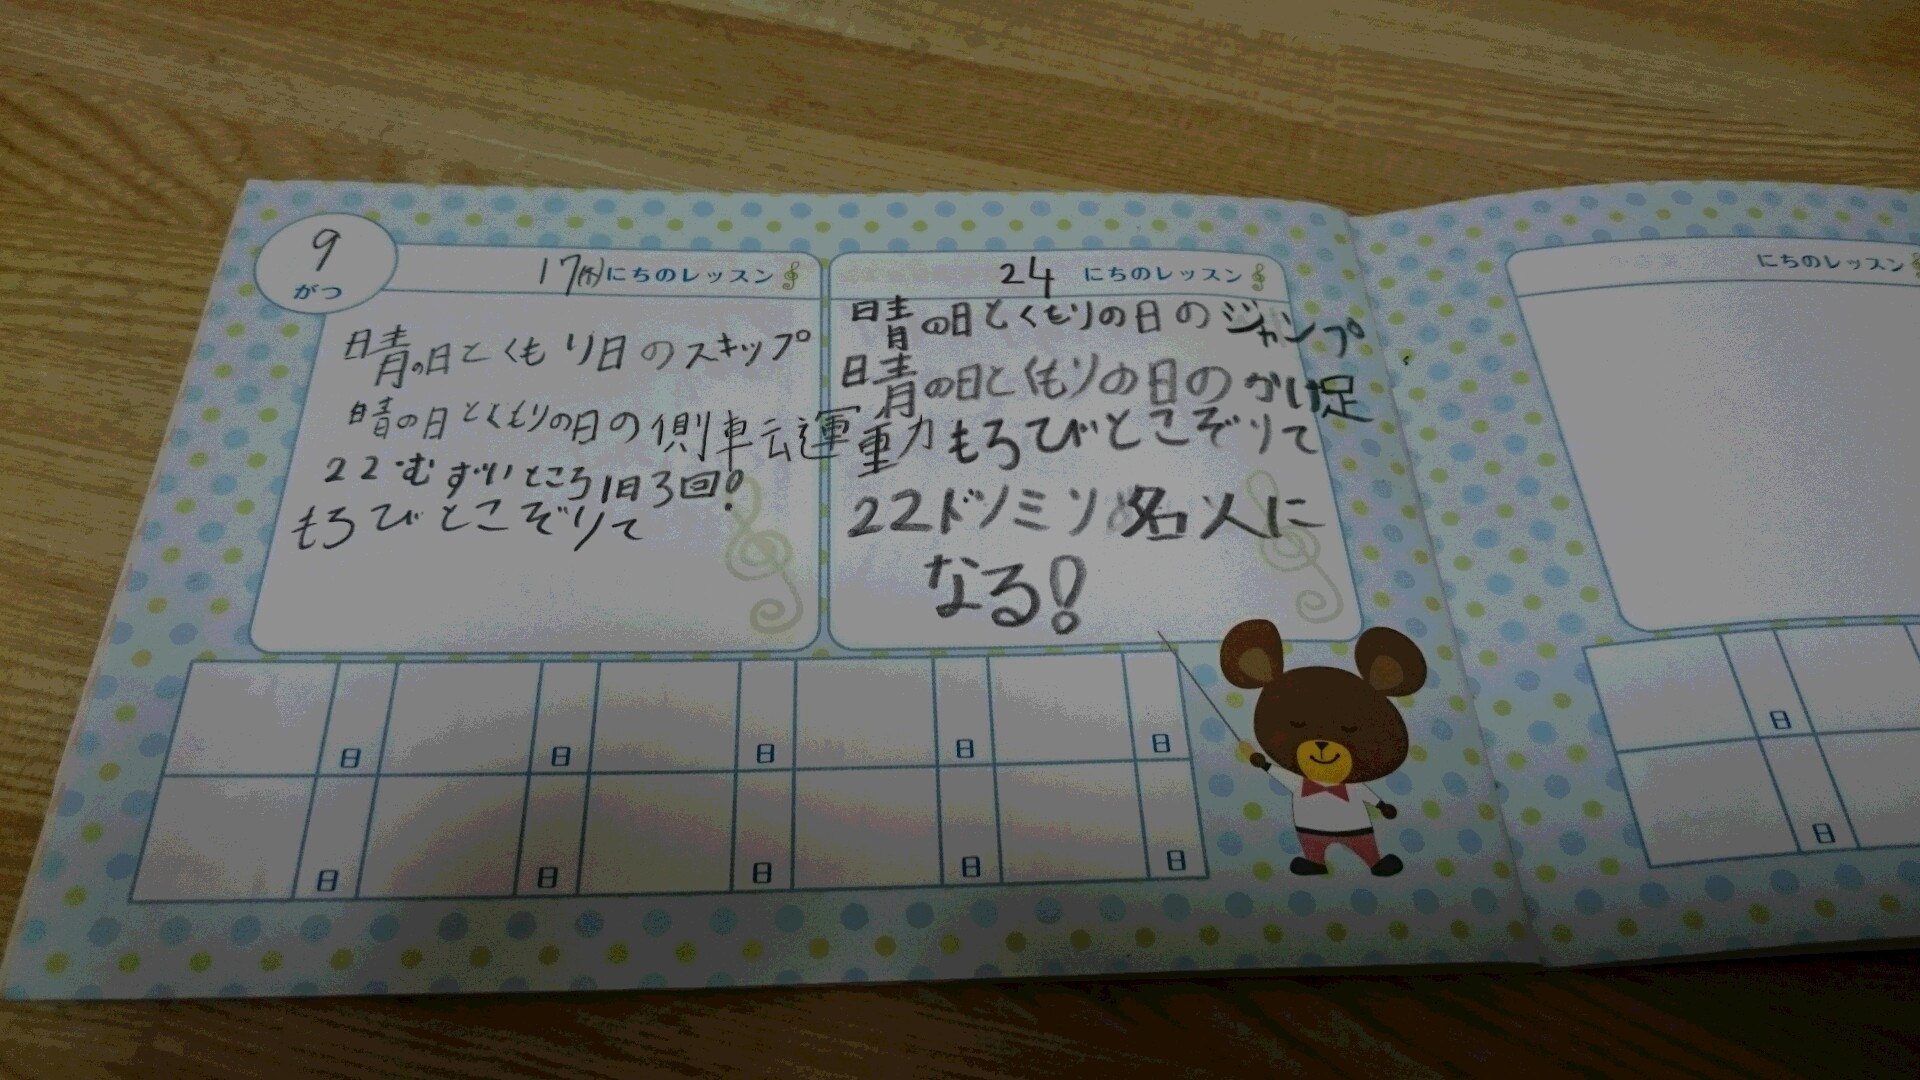 9
がつ
17㈭にちのレッスン
晴の日とくもり日のスキップ
晴の日とくもりの日の側車云運動
22むずいところ1日3回!
もろびとこぞりて
24 にちのレッスン
晴の日とくもりの日のジャンプ
晴の日とくもりの日のかけ足
もろびとこぞりて
22ドソミソ名人に
なる!
日 日 日 日 日
日 日 日 日 日
にちのレッスン
日
日